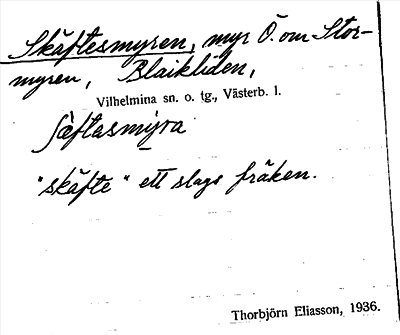 Skäftesmyren, myr Ö. om Stor-
myren, Blaikliden,
Vilhelmina sn. o. tg., Västerb. l.
ʃæftasmyra
"skäfte" ett slags fräken.
Thorbjörn Eliasson, 1936.